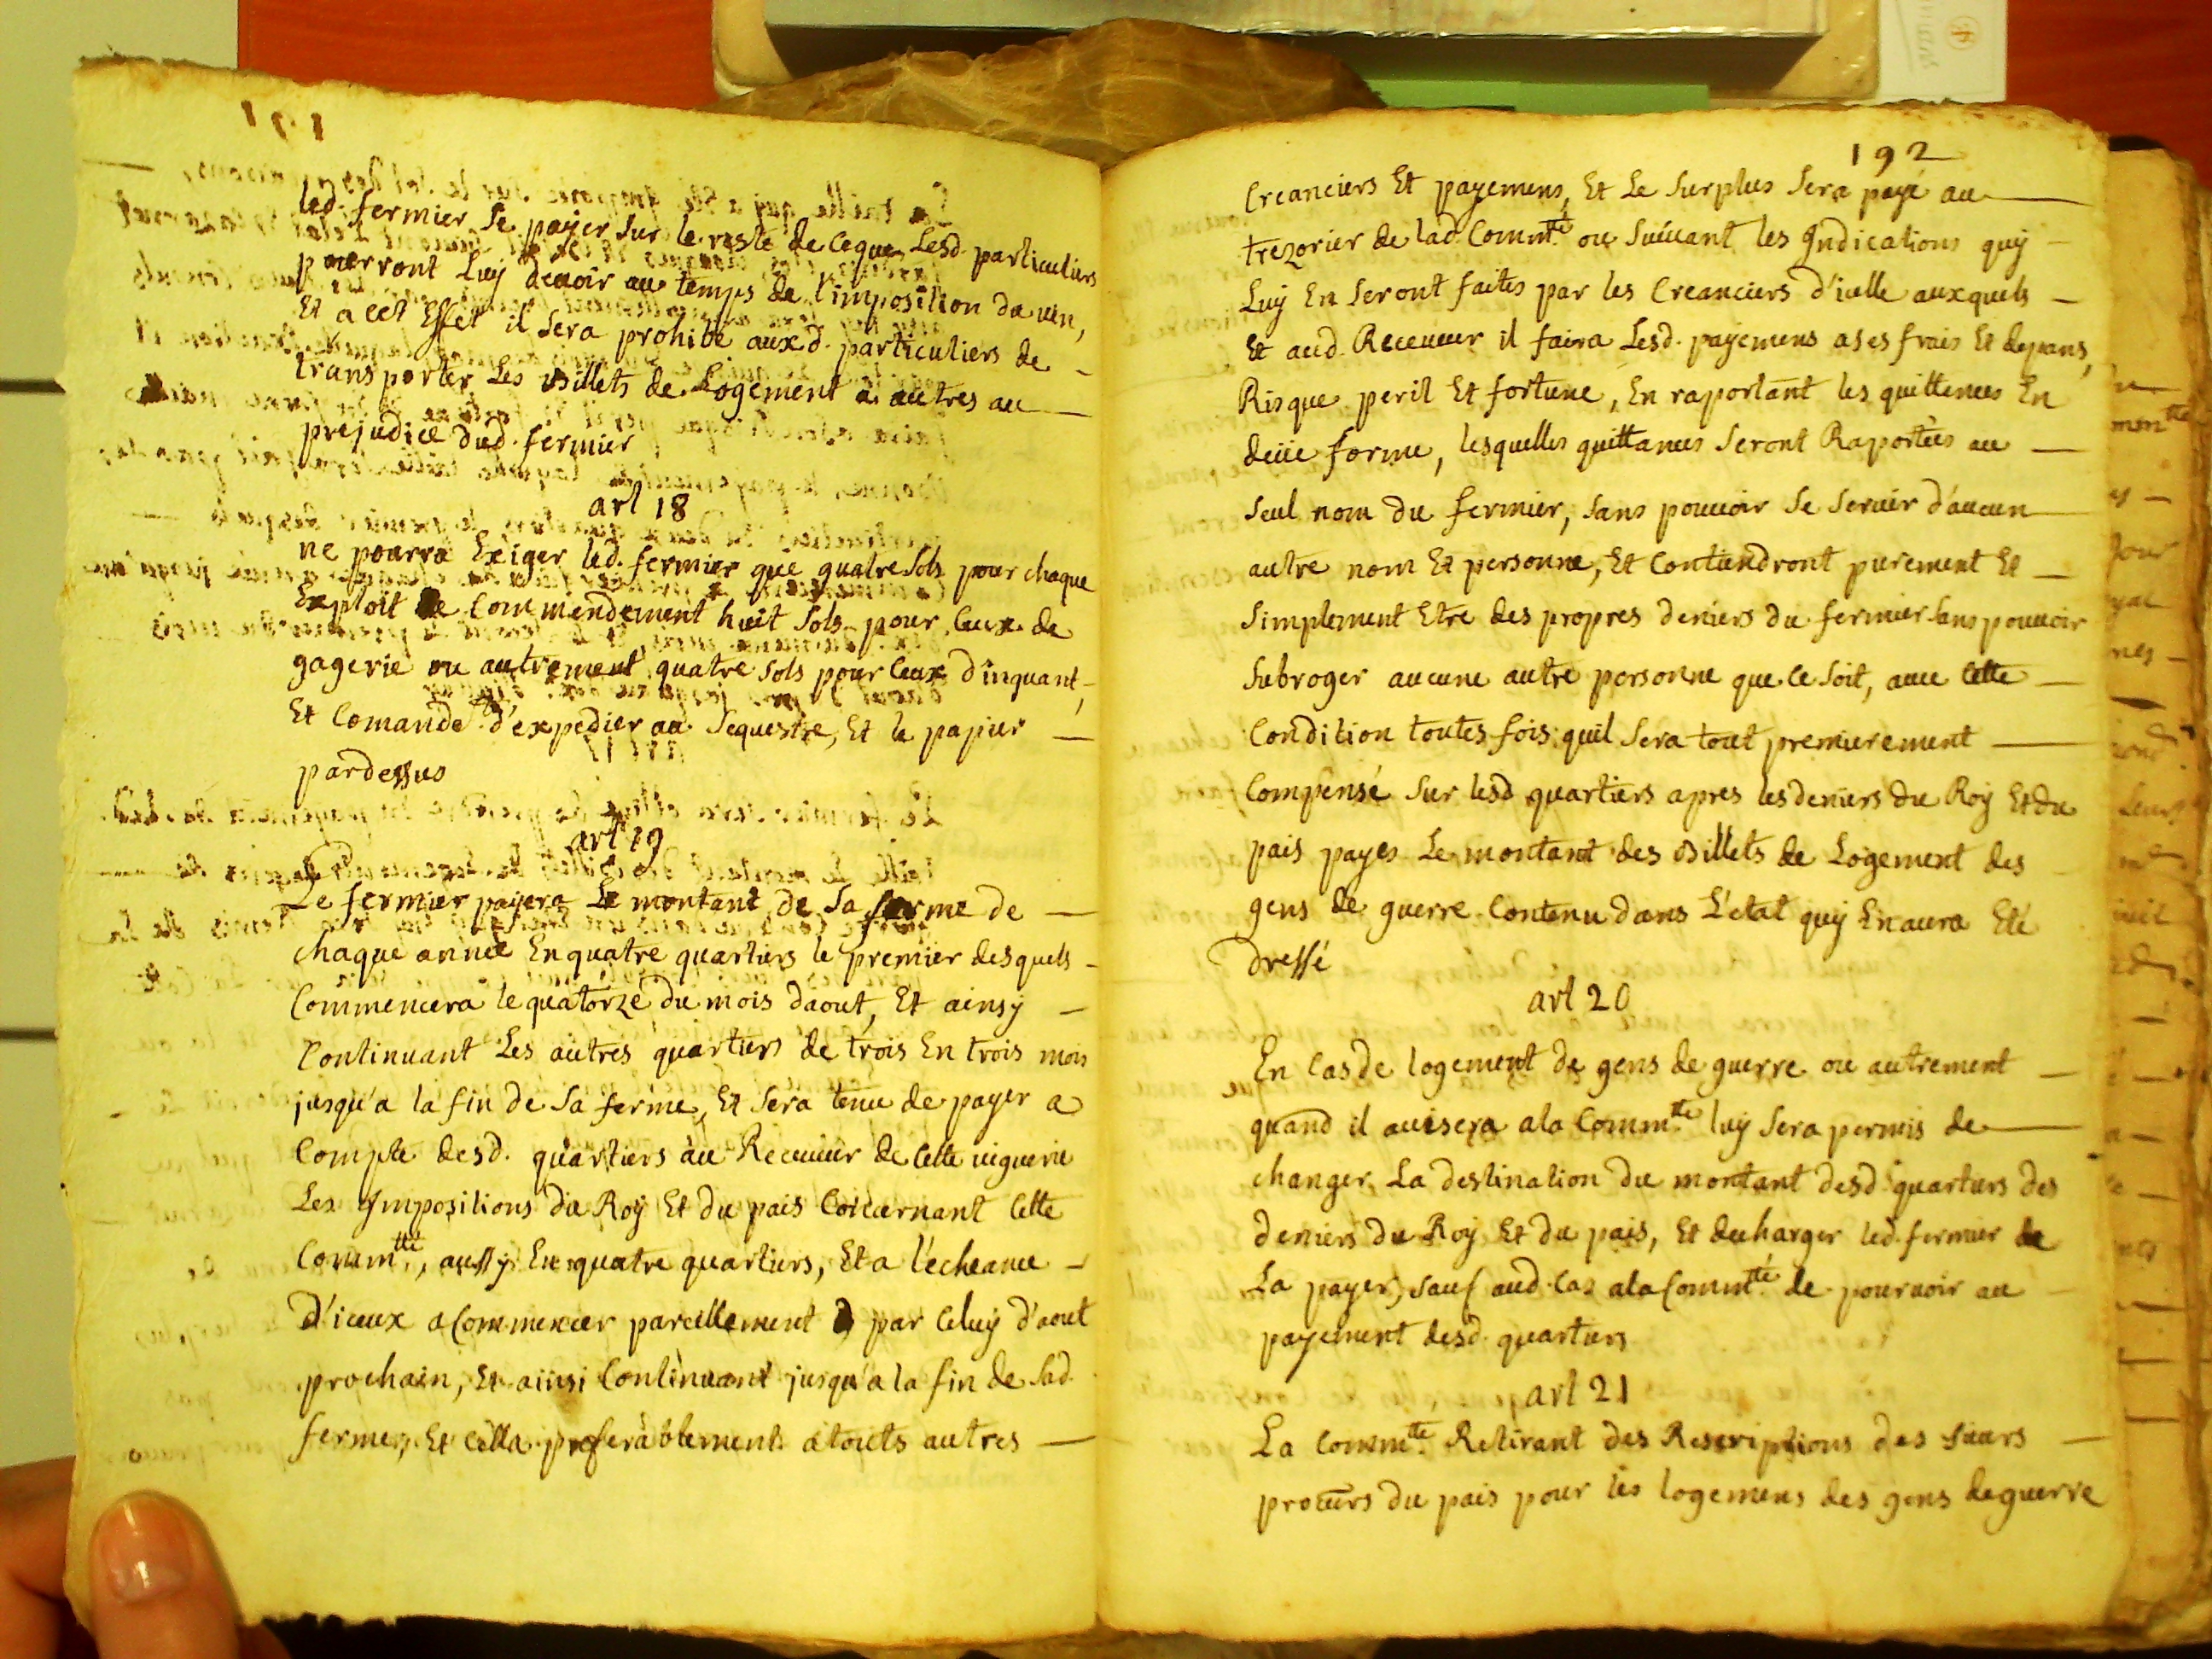 led. fermier Se payer Sur le reste de ceque Lesd. particuliers
pourront Luy devoir au temps de l'imposition du vin,
Et a cet Effet il Sera prohibé auxd. particuliers de
transporter Les Billets de Logement a autres au
prejudice dud. fermier
art 18
ne pourra Exiger led. fermier que quatre Sols pour chaque
Exploit de Commendement huit Sols pour Ceux de
gagerie ou autrement quatre Sols pour Ceux d'inquant,
Et Comande d'expedier au Sequestre, Et le papier
pardessus
art 19
Le fermier payera Le montant de Sa ferme de
chaque année En quatre quartiers le premier desquels
Commencera le quatorze du mois daout, Et ainsy
Continuant Les autres quartiers de trois En trois mois
jusqu'a la fin de Sa ferme, Et Sera tenu de payer a
Compte desd. quartiers au Receveur de Cette viguerie
Les Impositions du Roy Et du pais Concernant Cette
Comm.tté, aussy En quatre quartiers, Et a l'echeance
d'iceux a Commencer pareillement par Celuy d'aout
prochain, Et ainsi Continuant jusqu'a la fin de Sad.
ferme, Et Cella preferablement a touts autres
192
Creanciers Et payemens, Et Le Surplus Sera payé au
trezorier de lad. Comm.té ou Suivant les Indications quy
Luy En Seront faites par les Creanciers d'icelle auxquels
Et aud. Receveur il faira Lesd. payemens a Ses frais Et depans,
Risque peril Et fortune, En raportant les quittences En
deüe forme, lesquelles quittances Seront Raportées au
Seul nom du fermier, Sans pouvoir Se Servir d'aucun
autre nom Et personne, Et Contiendront purement Et
Simplement Etre des propres deniers du fermier Sans pouvoir
Subroger aucune autre personne que Ce Soit, avec Cette
Condition toutes fois quil Sera tout premierement
Compensé Sur lesd quartiers apres les deniers du Roy Et du
pais payes Le montant des Billets de Logement des
gens de guerre Contenu dans L'etat quy En aura Eté
Dressé
art 20
En Cas de logement de gens de guerre ou autrement
quand il avisera a la Comm.té luy Sera permis de
changer La destination du montant desd. quartiers des
deniers du Roy Et du pais, Et decharger led. fermier de
La payer, Sauf aud. Cas a la Comm.té de pourvoir au
payement desd. quartiers
art 21
La Comm.té Retirant des Rescriptions des Sieurs
procurs du pais pour les logemens des gens de guerre